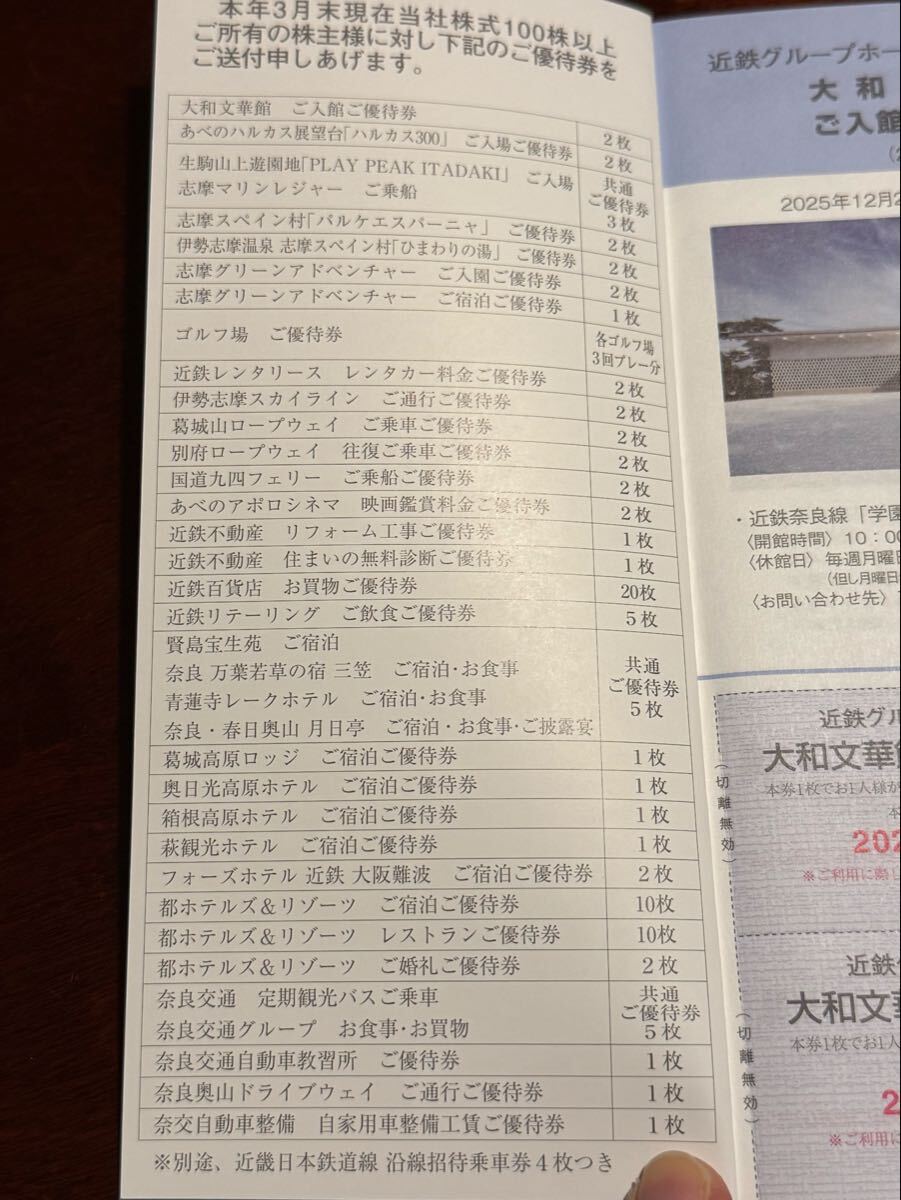 本年3月末現在当社株式100株以上
ご所有の株主様に対し下記のご優待券を
ご送付申しあげます。
大和文華館　ご入館ご優待券　2枚
あべのハルカス展望台「ハルカス300」　ご入場ご優待券　2枚
生駒山上遊園地「PLAY PEAK ITADAKI」　ご入場
志摩マリンレジャー　ご乗船
共通
ご優待券
3枚
志摩スペイン村「パルケエスパーニャ」　ご優待券　2枚
伊勢志摩温泉 志摩スペイン村「ひまわりの湯」　ご優待券　2枚
志摩グリーンアドベンチャー　ご入園ご優待券　2枚
志摩グリーンアドベンチャー　ご宿泊ご優待券　1枚
ゴルフ場　ご優待券
各ゴルフ場
3回プレー分
近鉄レンタリース　レンタカー料金ご優待券　2枚
伊勢志摩スカイライン　ご通行ご優待券　2枚
葛城山ロープウェイ　ご乗車ご優待券　2枚
別府ロープウェイ　往復ご乗車ご優待券　2枚
国道九四フェリー　ご乗船ご優待券　2枚
あべのアポロシネマ　映画鑑賞料金ご優待券　2枚
近鉄不動産　リフォーム工事ご優待券　1枚
近鉄不動産　住まいの無料診断ご優待券　1枚
近鉄百貨店　お買物ご優待券　20枚
近鉄リテーリング　ご飲食ご優待券　5枚
賢島宝生苑　ご宿泊
奈良 万葉若草の宿 三笠　ご宿泊・お食事
青蓮寺レークホテル　ご宿泊・お食事
奈良・春日奥山 月日亭　ご宿泊・お食事・ご披露宴
共通
ご優待券
5枚
葛城高原ロッジ　ご宿泊ご優待券　1枚
奥日光高原ホテル　ご宿泊ご優待券　1枚
箱根高原ホテル　ご宿泊ご優待券　1枚
萩観光ホテル　ご宿泊ご優待券　1枚
フォーズホテル 近鉄 大阪難波　ご宿泊ご優待券　2枚
都ホテルズ＆リゾーツ　ご宿泊ご優待券　10枚
都ホテルズ＆リゾーツ　レストランご優待券　10枚
都ホテルズ＆リゾーツ　ご婚礼ご優待券　2枚
奈良交通　定期観光バスご乗車
奈良交通グループ　お食事・お買物
共通
ご優待券
5枚
奈良交通自動車教習所　ご優待券　1枚
奈良奥山ドライブウェイ　ご通行ご優待券　1枚
奈交自動車整備　自家用車整備工賃ご優待券　1枚
※別途、近畿日本鉄道線 沿線招待乗車券4枚つき
近鉄グループホー
大 和
ご入館
(2
2025年12月2
・近鉄奈良線「学園
〈開館時間〉10：00
〈休館日〉毎週月曜日
(但し月曜日
〈お問い合わせ先〉
近鉄グル
大和文華館
本券1枚でお1人様が
本
202
※ご利用に際し
(切離無効)
近鉄グ
大和文華
本券1枚でお1人
2
※ご利用に
(切離無効)